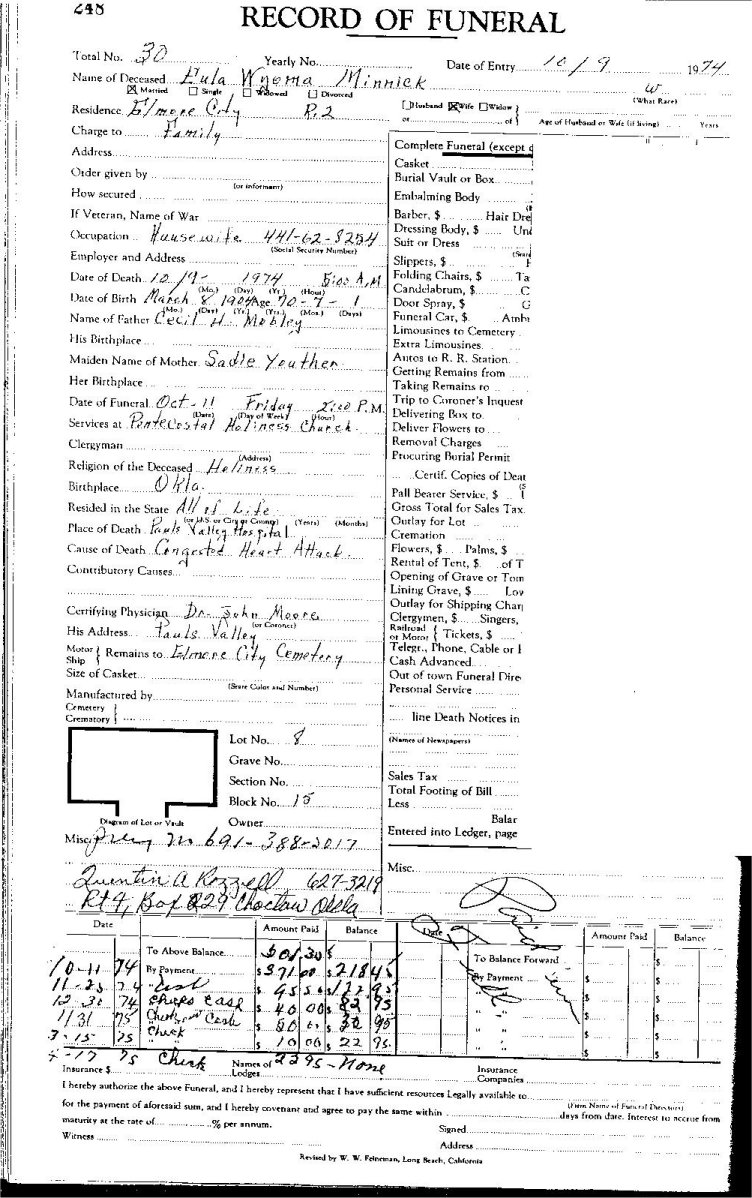 248
RECORD OF FUNERAL
Total No. 30 Yearly No. Date of Entry 10/9 1974
Name of Deceased Eula Wynema Minnick W
Married Single Widowed Divorced (What Race)
Residence Elmore City R.2 Husband Wife Widow
or of Age of Husband or Wife (if living) Years
Charge to Family
Address
Order given by
(or informant)
How secured
If Veteran, Name of War
Occupation Housewife 441-62-8254
(Social Security Number)
Employer and Address
Date of Death 10/9- 1974 5:00 A.M
(Mo.) (Day) (Yr.) (Hour)
Date of Birth March 8 1904 Age 70-7-1
(Mo.) (Day) (Yr.) (Yrs.) (Mos.) (Days)
Name of Father Cecil H. Mobley
His Birthplace
Maiden Name of Mother Sadie Youther
Her Birthplace
Date of Funeral Oct-11 Friday 2:00 P.M.
(Date) (Day of Week) (Hour)
Services at Pentecostal Holiness Church
Clergyman
(Address)
Religion of the Deceased Holiness
Birthplace Okla.
Resided in the State All of Life
(or U.S. or City or County) (Years) (Months)
Place of Death Pauls Valley Hospital
Cause of Death Congested Heart Attack
Contributory Causes
Certifying Physician Dr. John Moore
(or Coroner)
His Address Pauls Valley
Motor Ship Remains to Elmore City Cemetery
Size of Casket
(State Color and Number)
Manufactured by
Cemetery
Crematory
Lot No. 8
Grave No.
Section No.
Block No. 15
Diagram of Lot or Vault Owner
Misc. m 691-388-2017
Quentin A Rozzell 627-3219
Rt 4, Box 229 Choctaw Okla
Complete Funeral (except
Casket
Burial Vault or Box
Embalming Body
Barber, $ Hair Dre
Dressing Body, $ Un
Suit or Dress
Slippers, $
Folding Chairs, $ Ta
Candelabrum, $ C
Door Spray, $ G
Funeral Car, $ Ambu
Limousines to Cemetery
Extra Limousines
Autos to R. R. Station
Getting Remains from
Taking Remains to
Trip to Coroner's Inquest
Delivering Box to
Deliver Flowers to
Removal Charges
Procuring Burial Permit
Certif. Copies of Deat
Pall Bearer Service, $
Gross Total for Sales Tax
Outlay for Lot
Cremation
Flowers, $ Palms, $
Rental of Tent, $ of T
Opening of Grave or Tom
Lining Grave, $ Low
Outlay for Shipping Char
Clergymen, $ Singers,
Railroad or Motor Tickets, $
Telegr., Phone, Cable or
Cash Advanced
Out of town Funeral Dire
Personal Service
line Death Notices in
(Names of Newspapers)
Sales Tax
Total Footing of Bill
Less
Balan
Entered into Ledger, page
Misc.
Paid
Date Amount Paid Balance Date Amount Paid Balance
To Above Balance To Balance Forward
10-11 74 By Payment $371.00 $218.45 By Payment
11-23 74 Cash 95 50 122 95
12-30 74 Check Cash 40 00 82 95
1/31 75 Cash 50 32 95
3-15 75 Check 10 00 22 95
4-17 75 Check 22 95 - None
Insurance $ Names of Lodges Insurance Companies
I hereby authorize the above Funeral, and I hereby represent that I have sufficient resources Legally available to
(Firm Name of Funeral Directors)
for the payment of aforesaid sum, and I hereby covenant and agree to pay the same within days from date. Interest to accrue from
maturity at the rate of % per annum. Signed
Witness Address
Revised by W. W. Feineman, Long Beach, California